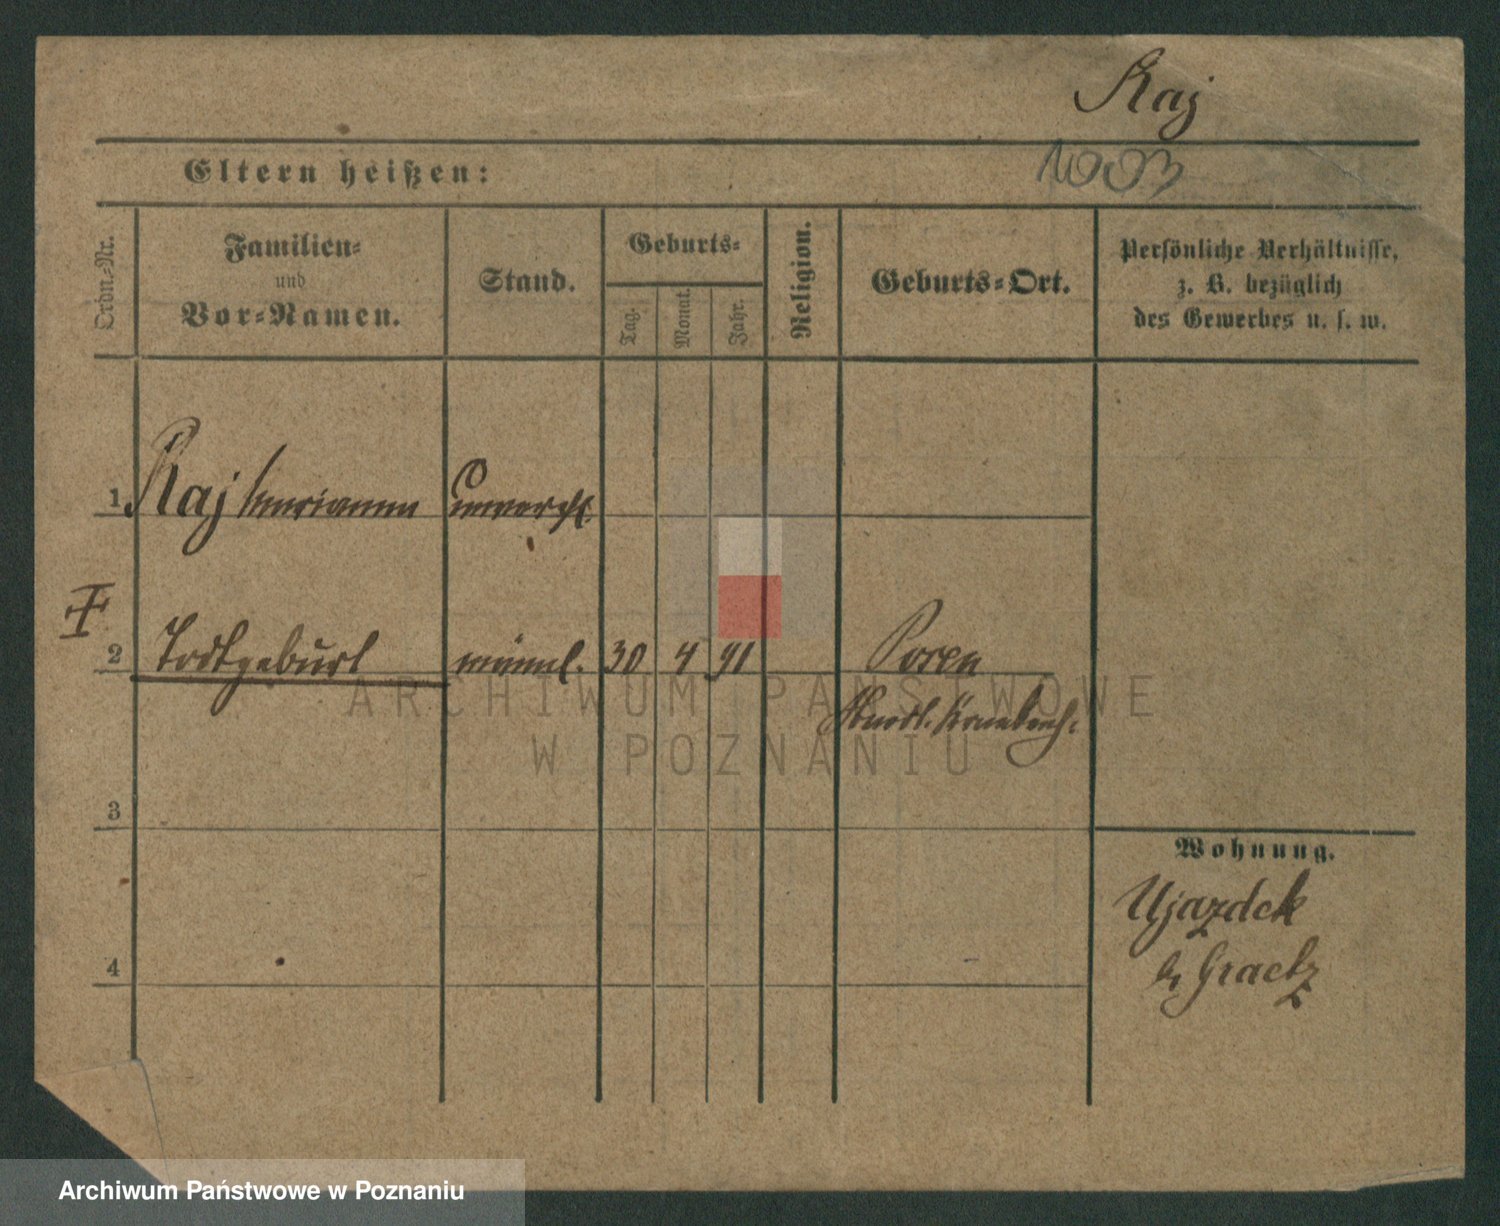 Raj
Eltern heißen:
Ordn.-Nr.
Familien-
und
Vor-Namen.
Stand.
Geburts-
Tag.
Monat.
Jahr.
Religion.
Geburts-Ort.
Persönliche Verhältnisse,
z. B. bezüglich
des Gewerbes u. s. w.
1 Raj Marianna unverehl.
2 Todtgeburt männl. 30 4 91 Posen
Stadt. Krankenh.
3
4
Wohnung.
Ujazdek
b/ Graetz
ARCHIWUM PAŃSTWOWE
W POZNANIU
Archiwum Państwowe w Poznaniu